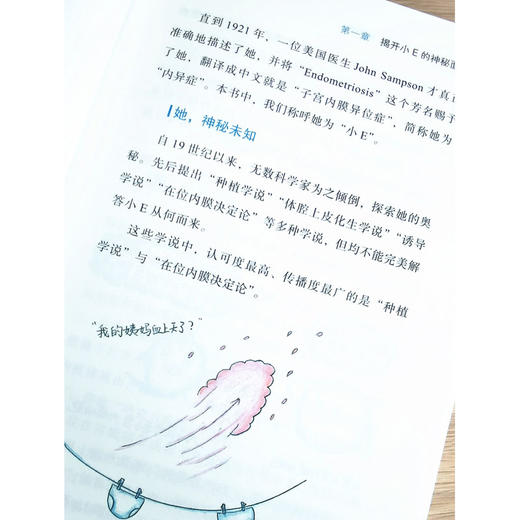 第一章 揭开小E的神秘面
直到1921年，一位美国医生John Sampson才真正
准确地描述了她，并将“Endometriosis”这个芳名赐予
了她，翻译成中文就是“子宫内膜异位症”，简称她为
“内异症”。本书中，我们称呼她为“小E”。
她，神秘未知
自19世纪以来，无数科学家为之倾倒，探索她的奥
秘。先后提出“种植学说”“体腔上皮化生学说”“诱导
学说”“在位内膜决定论”等多种学说，但均不能完美解
答小E从何而来。
这些学说中，认可度最高、传播度最广的是“种植
学说”与“在位内膜决定论”。
“我的姨妈血上天了？”